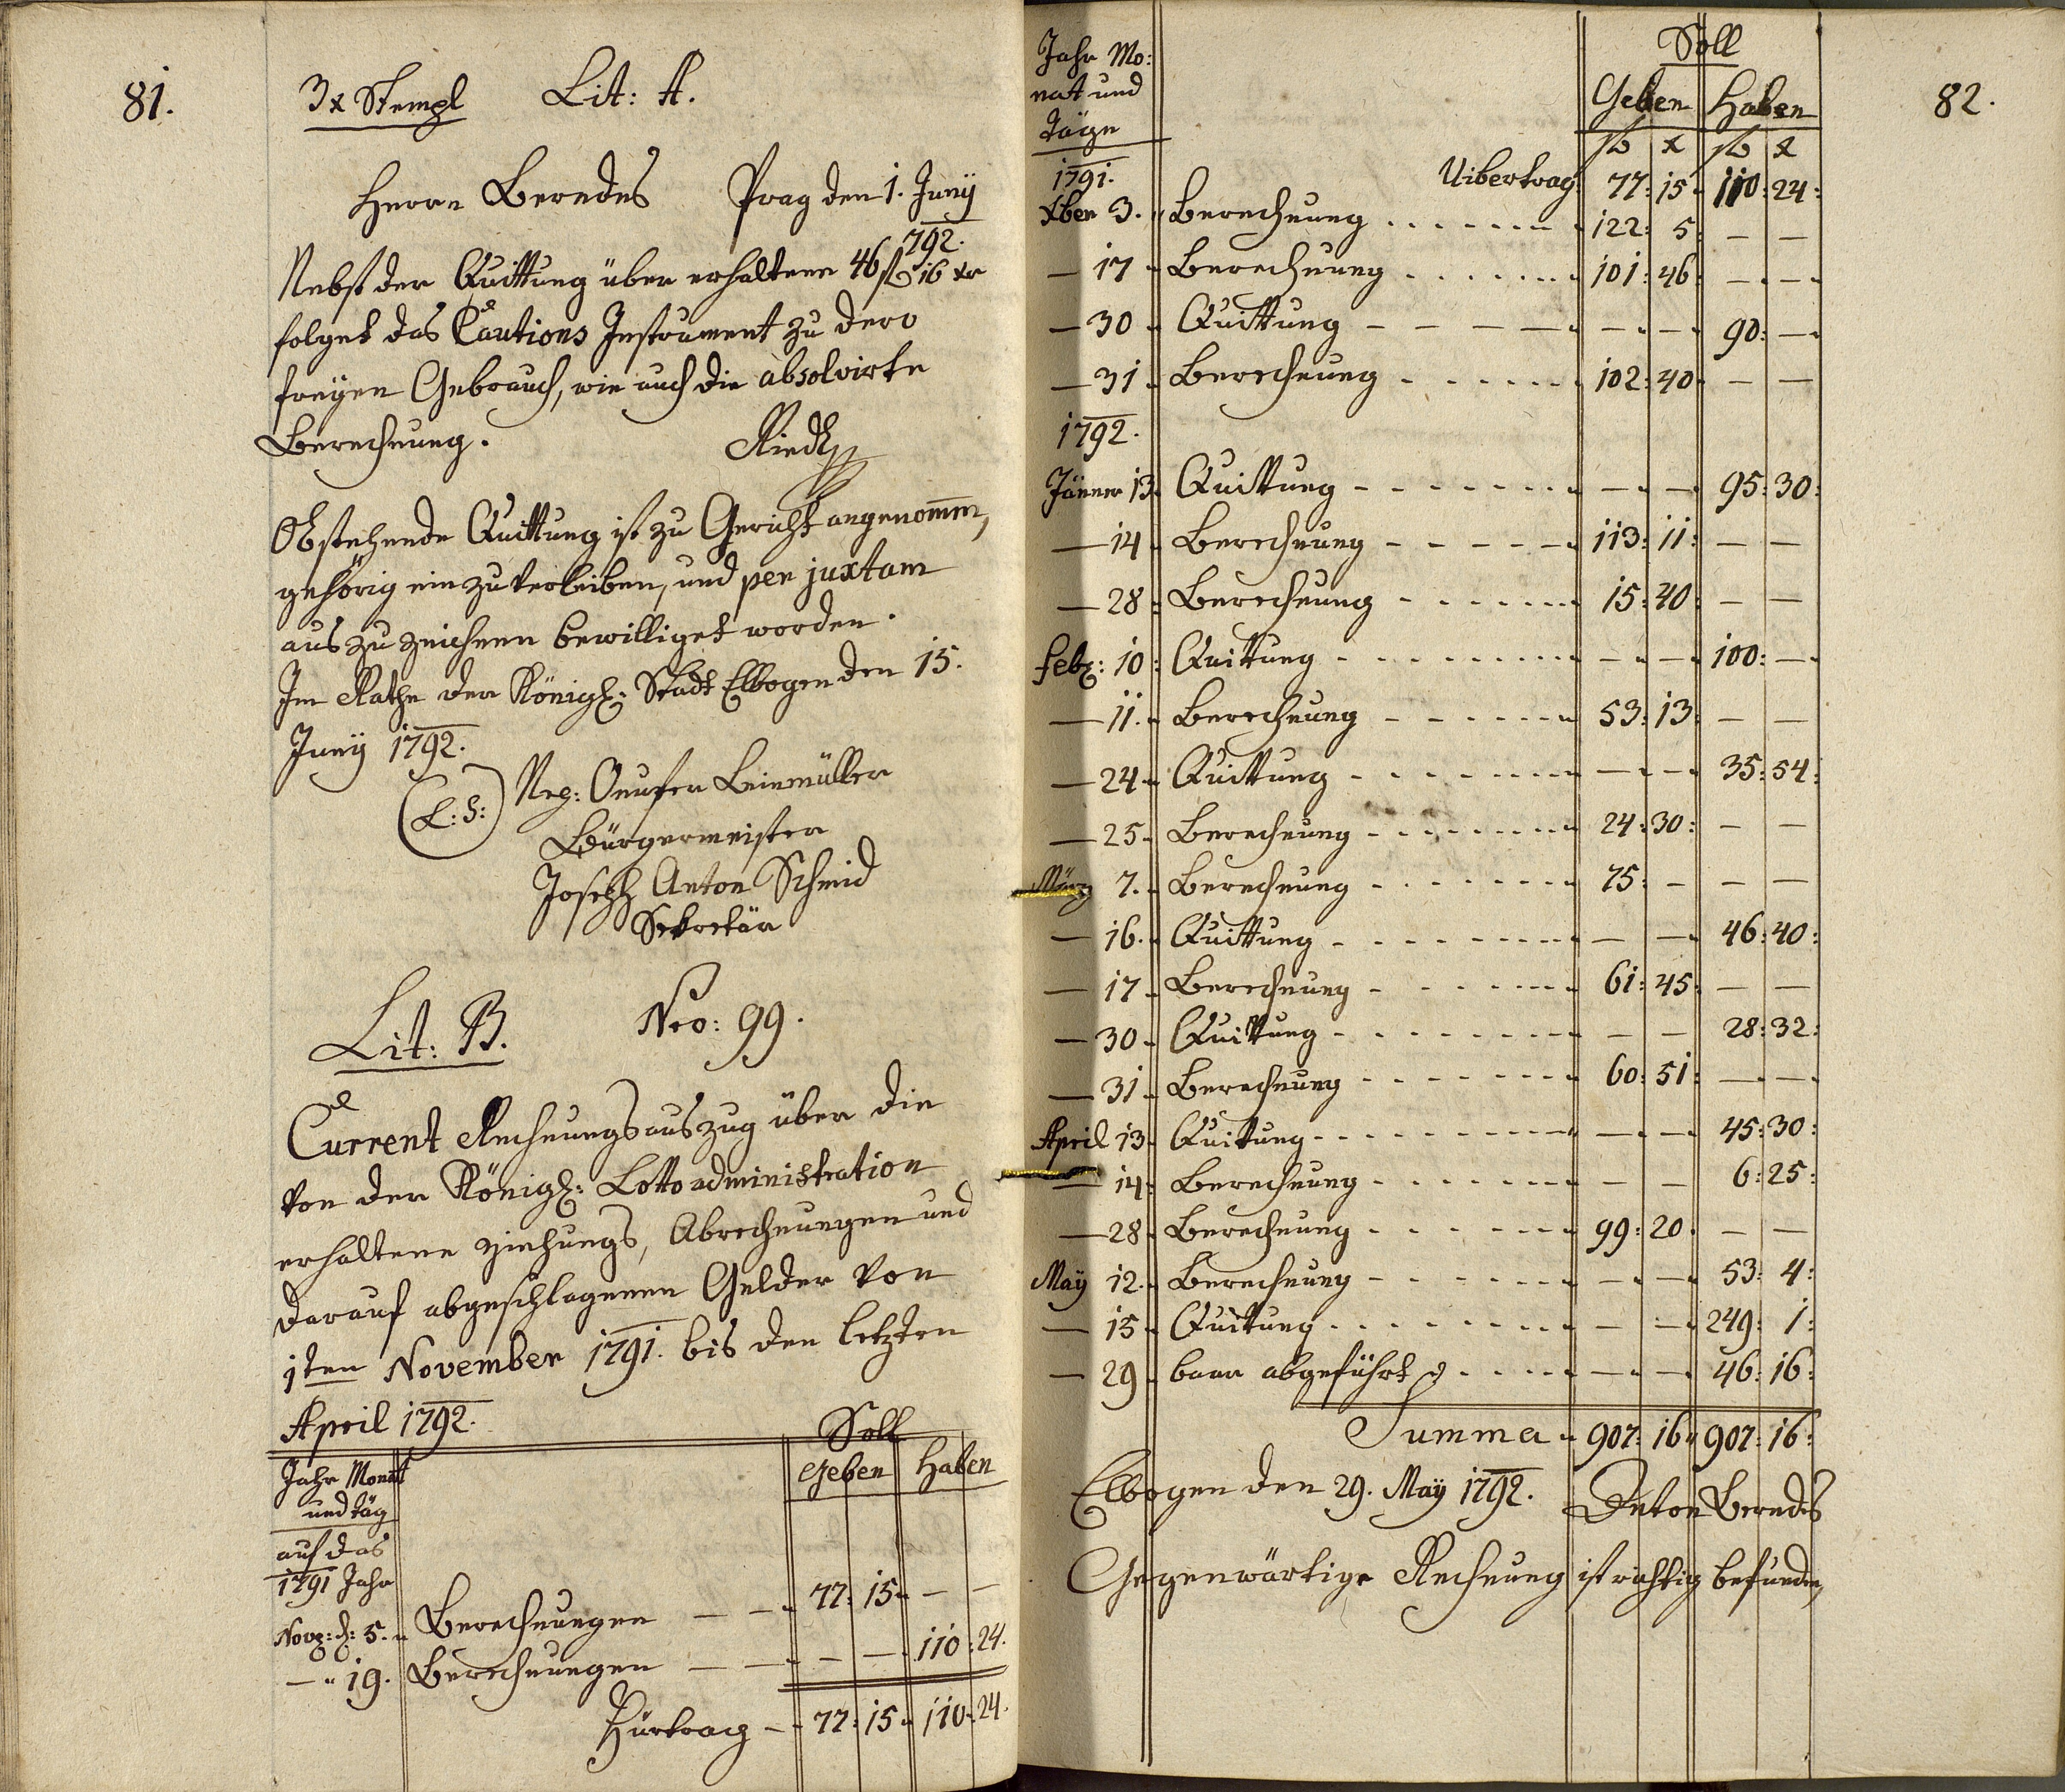 81.
3 x Stempl Lit: A.
Herrn Berndes Prag den 1. Junÿ
792.
Nebst der Quittung über erhaltene 46 fl 16 xr
folget das Cautions Instrument zu dero
freÿen Gebrauch, wie auch die absolvirte
Berechnung.
Riedl
Obstehende Quittung ist zu Gericht angenomm̅en,
gehörig einzuverleiben, und per juxtam
auszuzeichnen bewilliget worden.
Im Rathe der Königl: Stadt Elbogen den 15.
Junÿ 1792.
(L: S:) Nep: Leinmüller
Bürgermeister
Joseph Anton Schmid
Sekretär
Lit: B. Nro: 99.
Current Rechnungsauszug über die
von der Königl: Lotto administration
erhaltene ziehungs, Abrechnungen und
darauf abgeschlagenen Gelder von
1ten November 1791. bis den letzten
April 1792.
Soll
Jahr Monat Geben Haben
und täg
auf das
1791 Jahr
Nov: d: 5. Berechnungen — — 77: 15 — —
— " 19. Berechnungen — — — — 110: 24.
Fürtrag — 77: 15 110: 24.
82.
Soll
Jahr Mo:
nat und Geben Haben
täge
fl x fl x
1791. Uibertrag 77: 15 110: 24:
Xber 3. Berechnung 122: 5 — —
— 17 Berechnung 101: 46 — —
— 30 Quittung — — 90: —
— 31 Berechnung 102: 40 — —
1792.
Jänner 13 Quittung — — 95: 30:
— 14 Berechnung 113: 11: — —
— 28 Berechnung 15: 40 — —
Feb: 10: Quittung — — 100: —
— 11. Berechnung 53: 13 — —
— 24 Quittung — — 35: 54:
— 25 Berechnung 24: 30: — —
März 7. Berechnung 75: — — —
— 16. Quittung — — 46: 40:
— 17 Berechnung 61: 45 — —
— 30 Quittung — — 28: 32:
— 31 Berechnung 60: 51 — —
April 13 Quittung — — 45: 30:
— 14: Berechnung — — 6: 25:
— 28 Berechnung 99: 20 — —
Maÿ 12. Berechnung — — 53: 4:
— 15 Quittung — — 249: 1:
— 29 baar abgeführt — — 46: 16:
Summa 907: 16 907: 16:
Elbogen den 29. Maÿ 1792. Anton Berndes
Gegenwärtige Rechnung ist richtig befunden,